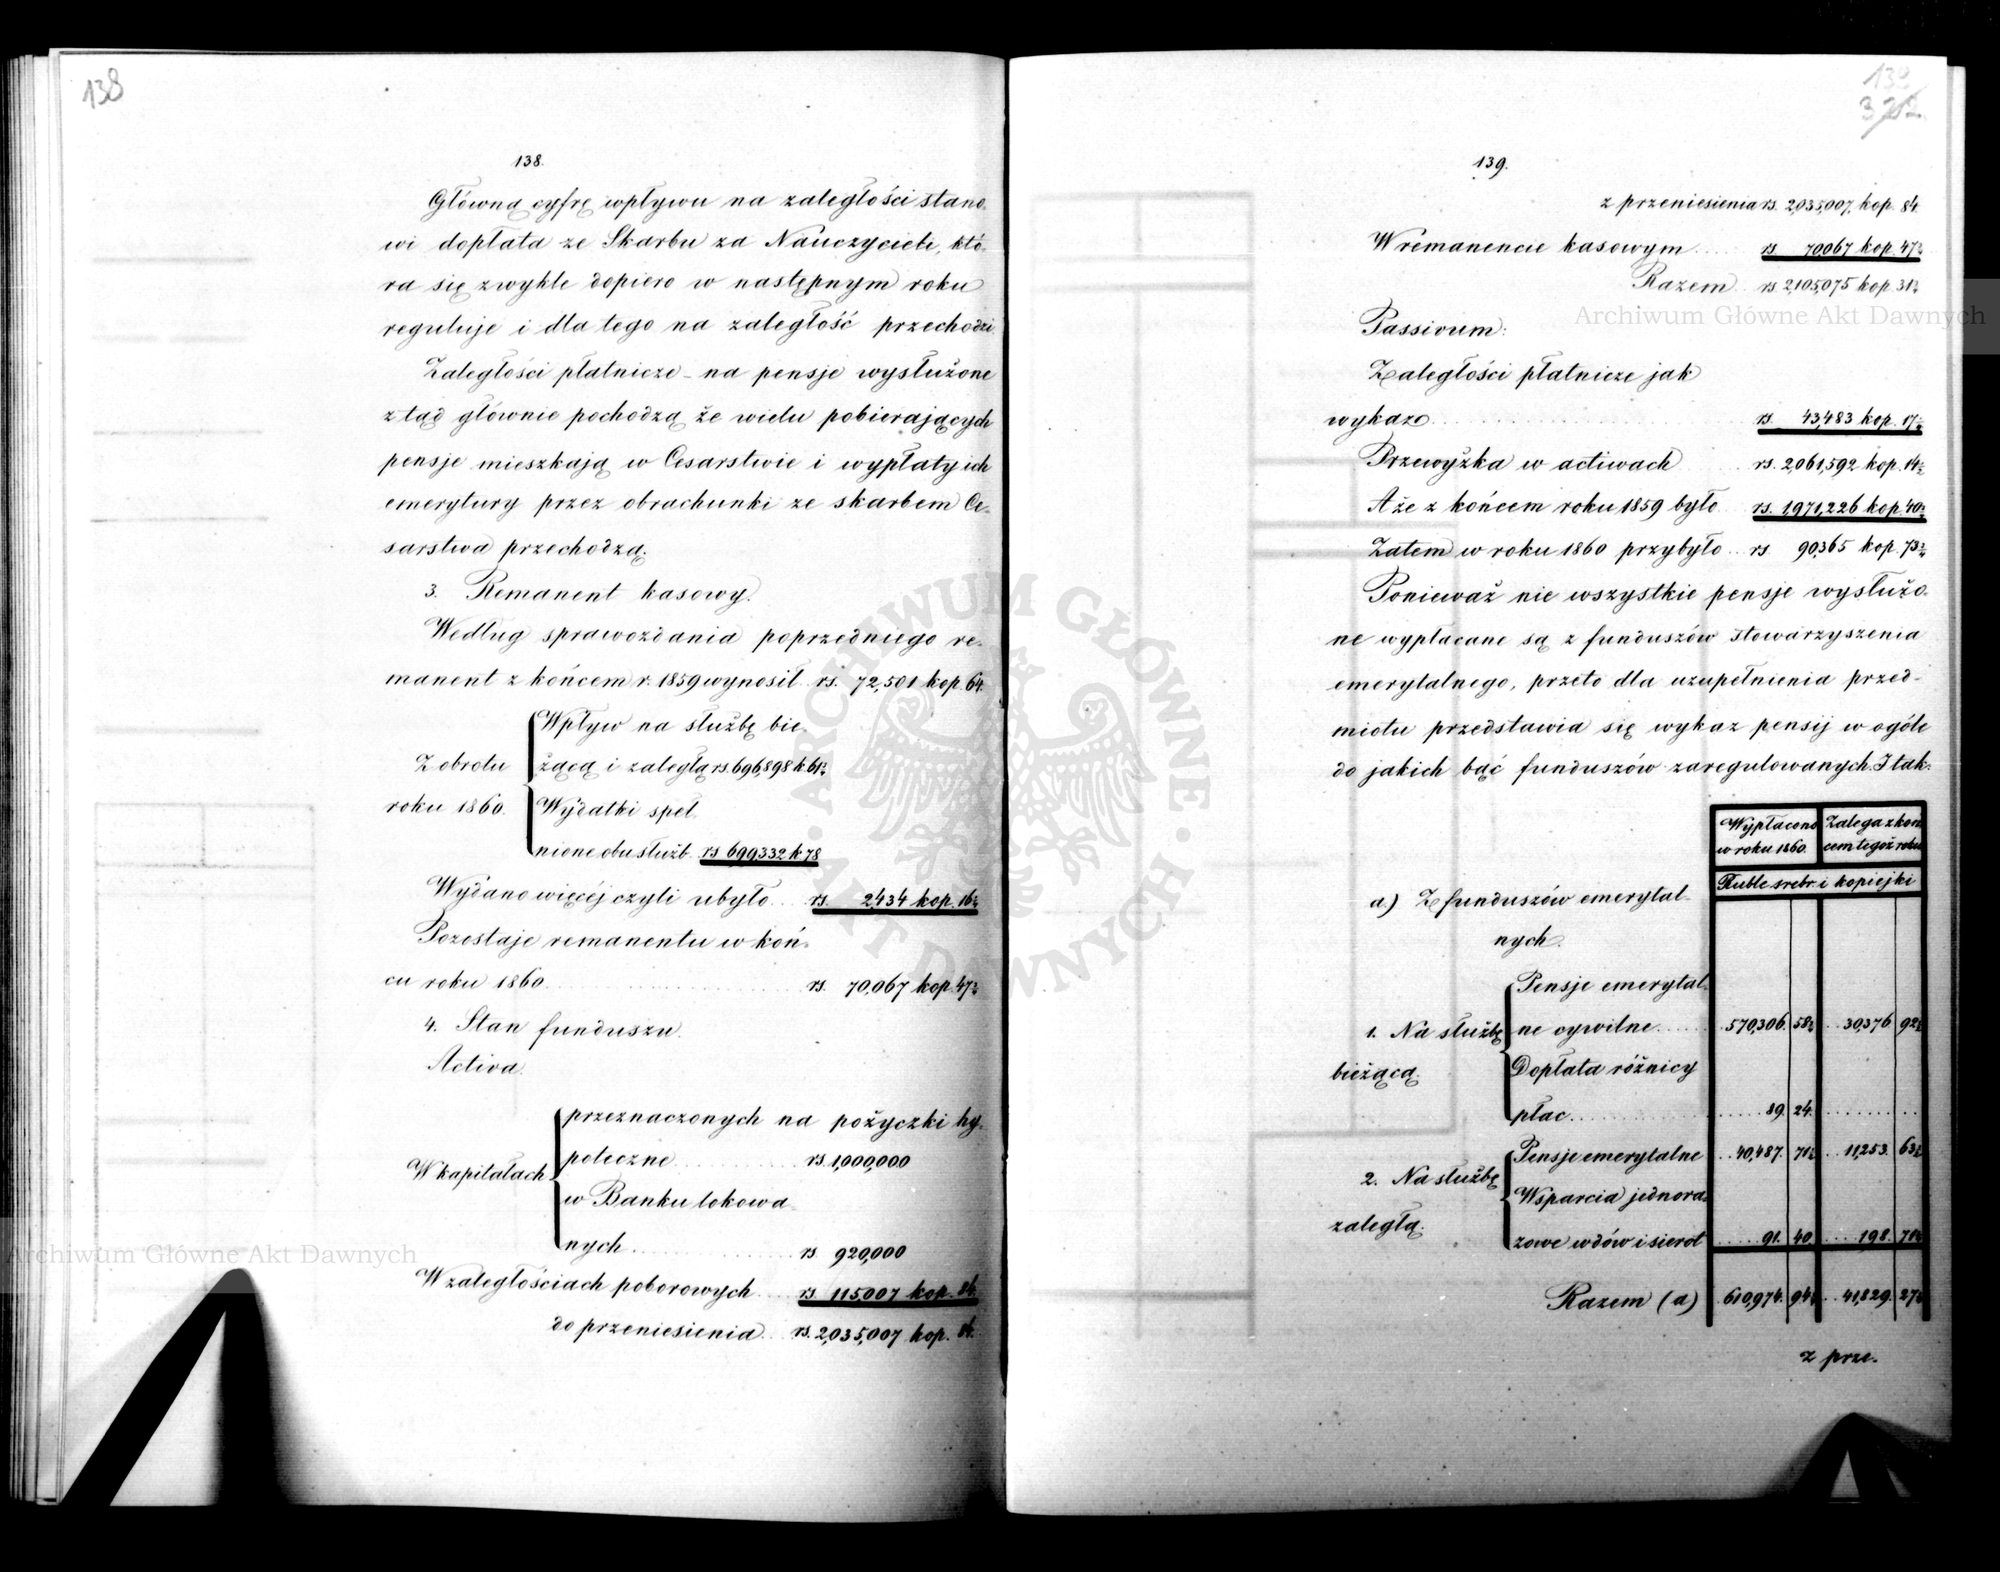 138
138.
Główną cyfrę wpływu na zaległości stano-
wi dopłata ze Skarbu za Nauczycieli, któ-
ra się zwykle dopiero w następnym roku
reguluje i dla tego na zaległość przechodzi
Zaległości płatnicze - na pensje wysłużone
ztąd głównie pochodzą że wielu pobierających
pensje mieszkają w Cesarstwie i wypłaty ich
emerytury przez obrachunki ze skarbem Ce-
sarstwa przechodzą.
3. Remanent kasowy.
Według sprawozdania poprzedniego re-
manent z końcem r. 1859 wynosił rs. 72,501 kop. 64.
Wpływ na służbę bie-
Z obrotu żącą i zaległą rs. 696,898 k. 61½
roku 1860. Wydatki speł-
nione obu służb. rs 699332 k 78
Wydano więcéj czyli ubyło .. rs. 2434 kop. 16½
Pozostaje remanentu w koń-
cu roku 1860 ........ rs. 70,067 kop. 47½
4. Stan funduszu.
Activa.
przeznaczonych na pożyczki hy-
poteczne ........ rs. 1,000,000
W kapitałach
w Banku lokowa-
nych ........ rs 920,000
W zaległościach poborowych .... rs. 115,007 kop. 84.
do przeniesienia .. rs. 2,035,007 kop. 84.
139
322
139.
z przeniesienia rs. 2,035,007, kop. 84.
W remanencie kasowym .... rs 70067 kop. 47½
Razem .. rs 2,105,075 kop 31½
Passivum:
Zaległości płatnicze jak
wykaz ........ rs. 43,483 kop. 17½
Przewyżka w activach rs. 2,061,592 kop. 14½
A że z końcem roku 1859 było rs. 1,971,226 kop. 40½
Zatem w roku 1860 przybyło .. rs 90,365 kop. 73½
Ponieważ nie wszystkie pensje wysłużo-
ne wypłacane są z funduszów stowarzyszenia
emerytalnego, przeto dla uzupełnienia przed-
miotu przedstawia się wykaz pensij w ogóle
do jakich bąć funduszów zaregulowanych. I tak.
Wypłacono Zalega z koń-
w roku 1860. cem tegoż roku
Ruble srebr. i kopiejki
a) Z funduszów emerytal-
nych.
Pensje emerytal-
1. Na służbę ne cywilne .... 570,306. 58½ .. 30,376. 92½
bieżącą. Dopłata różnicy
płac ........ 89. 24. ........
Pensje emerytalne .. 40,487. 71½ .. 11,253. 63½
2. Na służbę
Wsparcia jednora-
zaległą. zowe wdów i sierot .... 91. 40. .... 198. 71½
Razem (a) 610,974. 94½ .. 41,829. 27½
z prze-
Archiwum Główne Akt Dawnych
Archiwum Główne Akt Dawnych
ARCHIWUM GŁÓWNE · AKT DAWNYCH ·